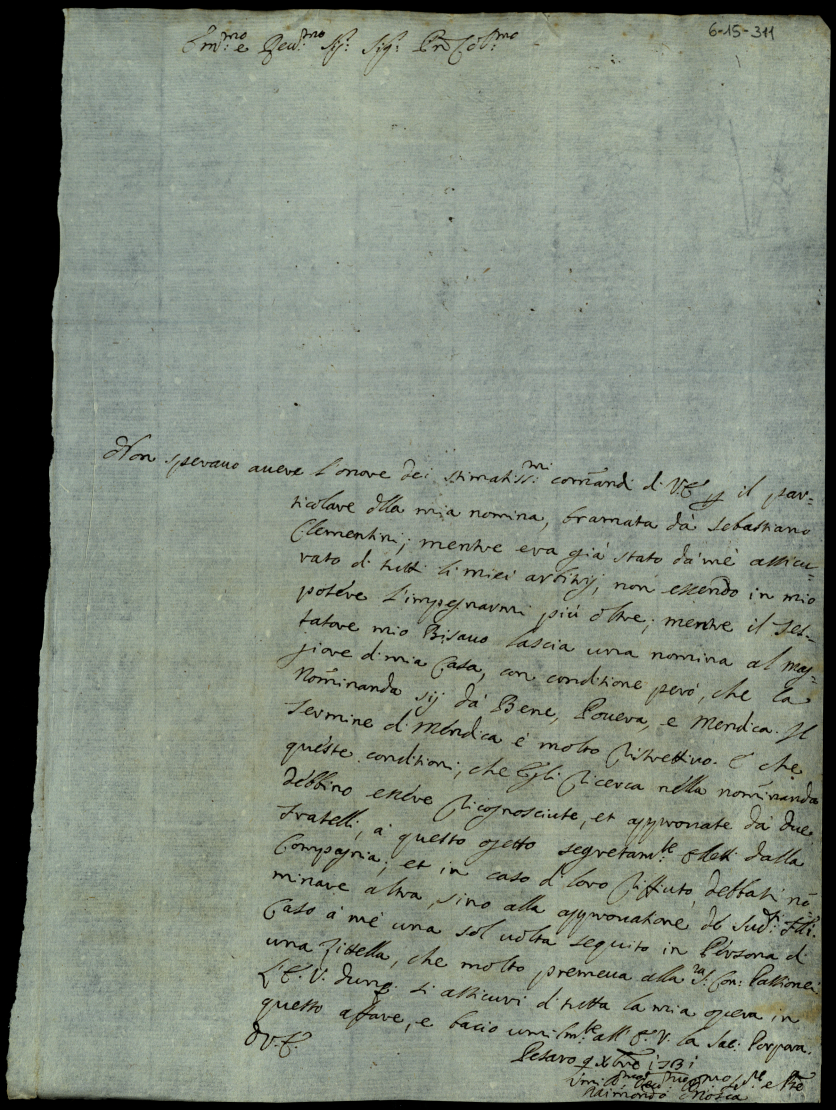 6-15-311
Em:mo e Reu:mo Sig: Sig: Pron Col:mo
Non sperauo auere l'onore dei stimatiss:mi comandi di V.E. p il par-
ticolare della mia nomina, bramata dà Sebastiano
Clementini; mentre era già stato dà mè assicu-
rato di tutti li miei arbitrij, non essendo in mio
potére l'impegnarmi più oltre; mentre il Tes-
tatore mio Bisauo lascia una nomina al mag-
giore di mia Casa, con conditione però, che la
Nominanda sij dà Bene, Pouera, e Mendica. Il
Termine di Méndica è molto ristrettiuo. E che
quéste conditioni, che Egli ricerca nella nominanda
debbino essére ricognosciute, et approuate dà due
Fratelli, à questo ogetto segretam:te eletti dalla
Compagnia; et in caso di loro rifiuto, debbasi no-
minare altra, sino alla approuatione de sud:i Flli.
Caso à mè una sol uolta seguito in Pérsona di
una Zittella, che molto premeua alla S:ra Con: Passionei
L'E.V. dunq: si assicuri di tutta la mia opera in
questo affare, e bacio umilm:te all' E.V. la Sac: Porpora.
D V.E.
Pesaro 9 Xbre 1731
Raimondo Mosca